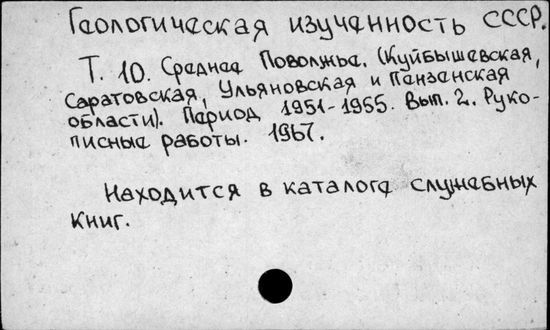 Геологическая изученность СССР.
Т. 10. Среднее Поволжье. (Куйбышевская,
Саратовская, Ульяновская и Пензенская
области). Период 1951-1955. Вып. 2. Руко-
писные работы. 1967.
Находится в каталоге служебных
книг.